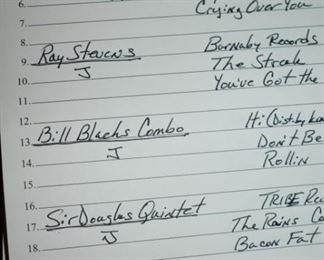 6.
Crying Over You
7.
8.
Ray Stevens Barnaby Records
9. J The Streak
10. You've Got the
11.
12.
Bill Blacks Combo Hi
13. J Don't Be
14. Rollin
15.
16.
Sir Douglas Quintet TRIBE Rec
17. J The Rains Ca
18. Bacon Fat